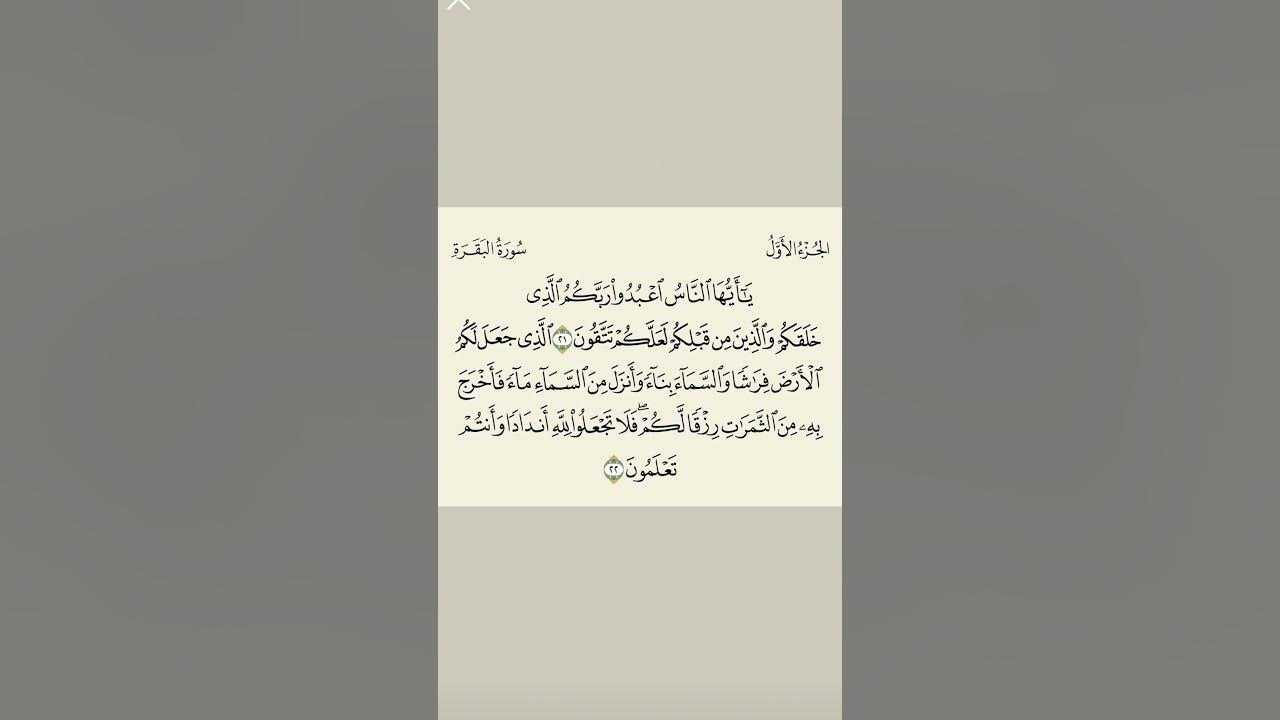 الجُزْءُ الأَوَّلُ سُورَةُ البَقَرَةِ
يَٰٓأَيُّهَا ٱلنَّاسُ ٱعْبُدُوا۟ رَبَّكُمُ ٱلَّذِى
خَلَقَكُمْ وَٱلَّذِينَ مِن قَبْلِكُمْ لَعَلَّكُمْ تَتَّقُونَ ٢١ ٱلَّذِى جَعَلَ لَكُمُ
ٱلْأَرْضَ فِرَٰشًا وَٱلسَّمَآءَ بِنَآءً وَأَنزَلَ مِنَ ٱلسَّمَآءِ مَآءً فَأَخْرَجَ
بِهِۦ مِنَ ٱلثَّمَرَٰتِ رِزْقًا لَّكُمْ ۖ فَلَا تَجْعَلُوا۟ لِلَّهِ أَندَادًا وَأَنتُمْ
تَعْلَمُونَ ٢٢